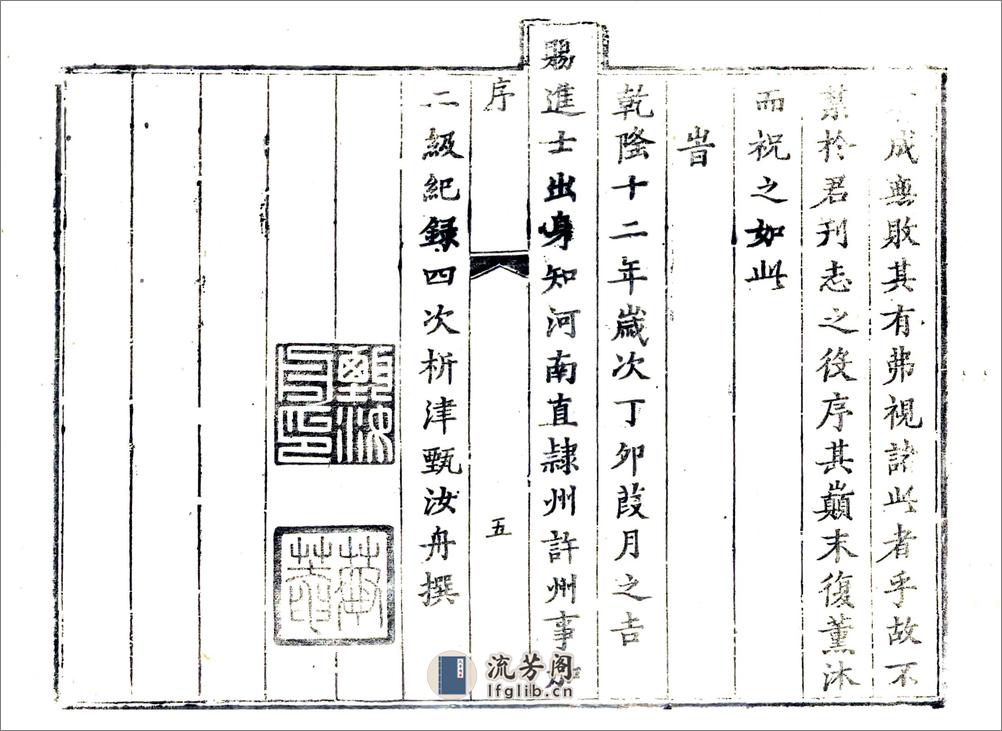 成無敗其有弗視諸此者乎故不
禁於君刊志之役序其巔末復薰沐
而祝之如此
旹
乾隆十二年歲次丁卯葭月之吉
賜進士出身知河南直隸州許州事加
序
五
二級紀録四次析津甄汝舟撰
甄汝舟印
流芳阁
lfglib.cn